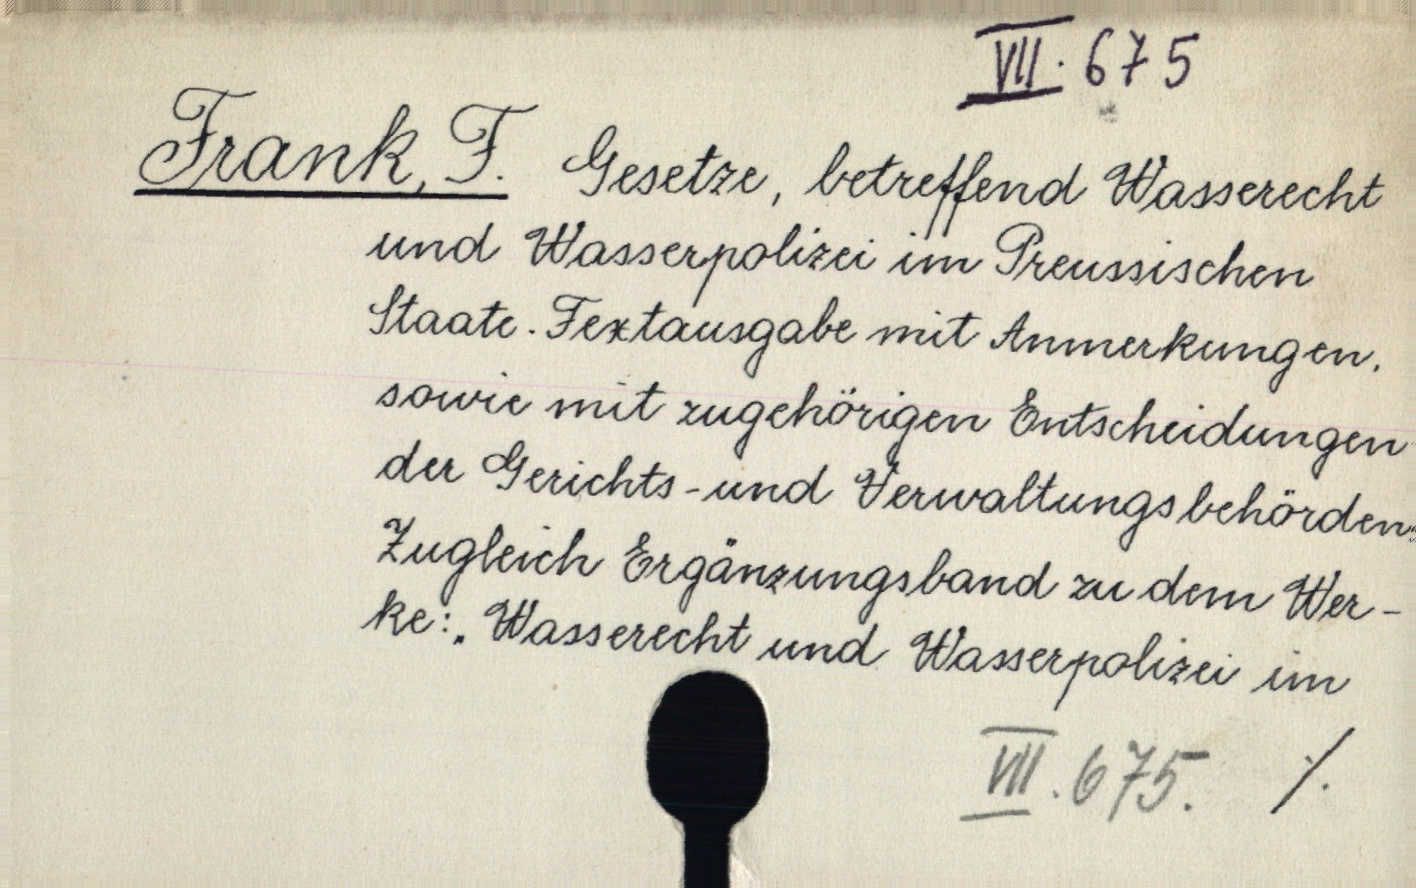 VII. 675
Frank, F. Gesetze, betreffend Wasserecht
und Wasserpolizei im Preussischen
Staate. Textausgabe mit Anmerkungen,
sowie mit zugehörigen Entscheidungen
der Gerichts- und Verwaltungsbehörden.
Zugleich Ergänzungsband zu dem Wer-
ke: „Wasserecht und Wasserpolizei im
VII. 675. ⁒